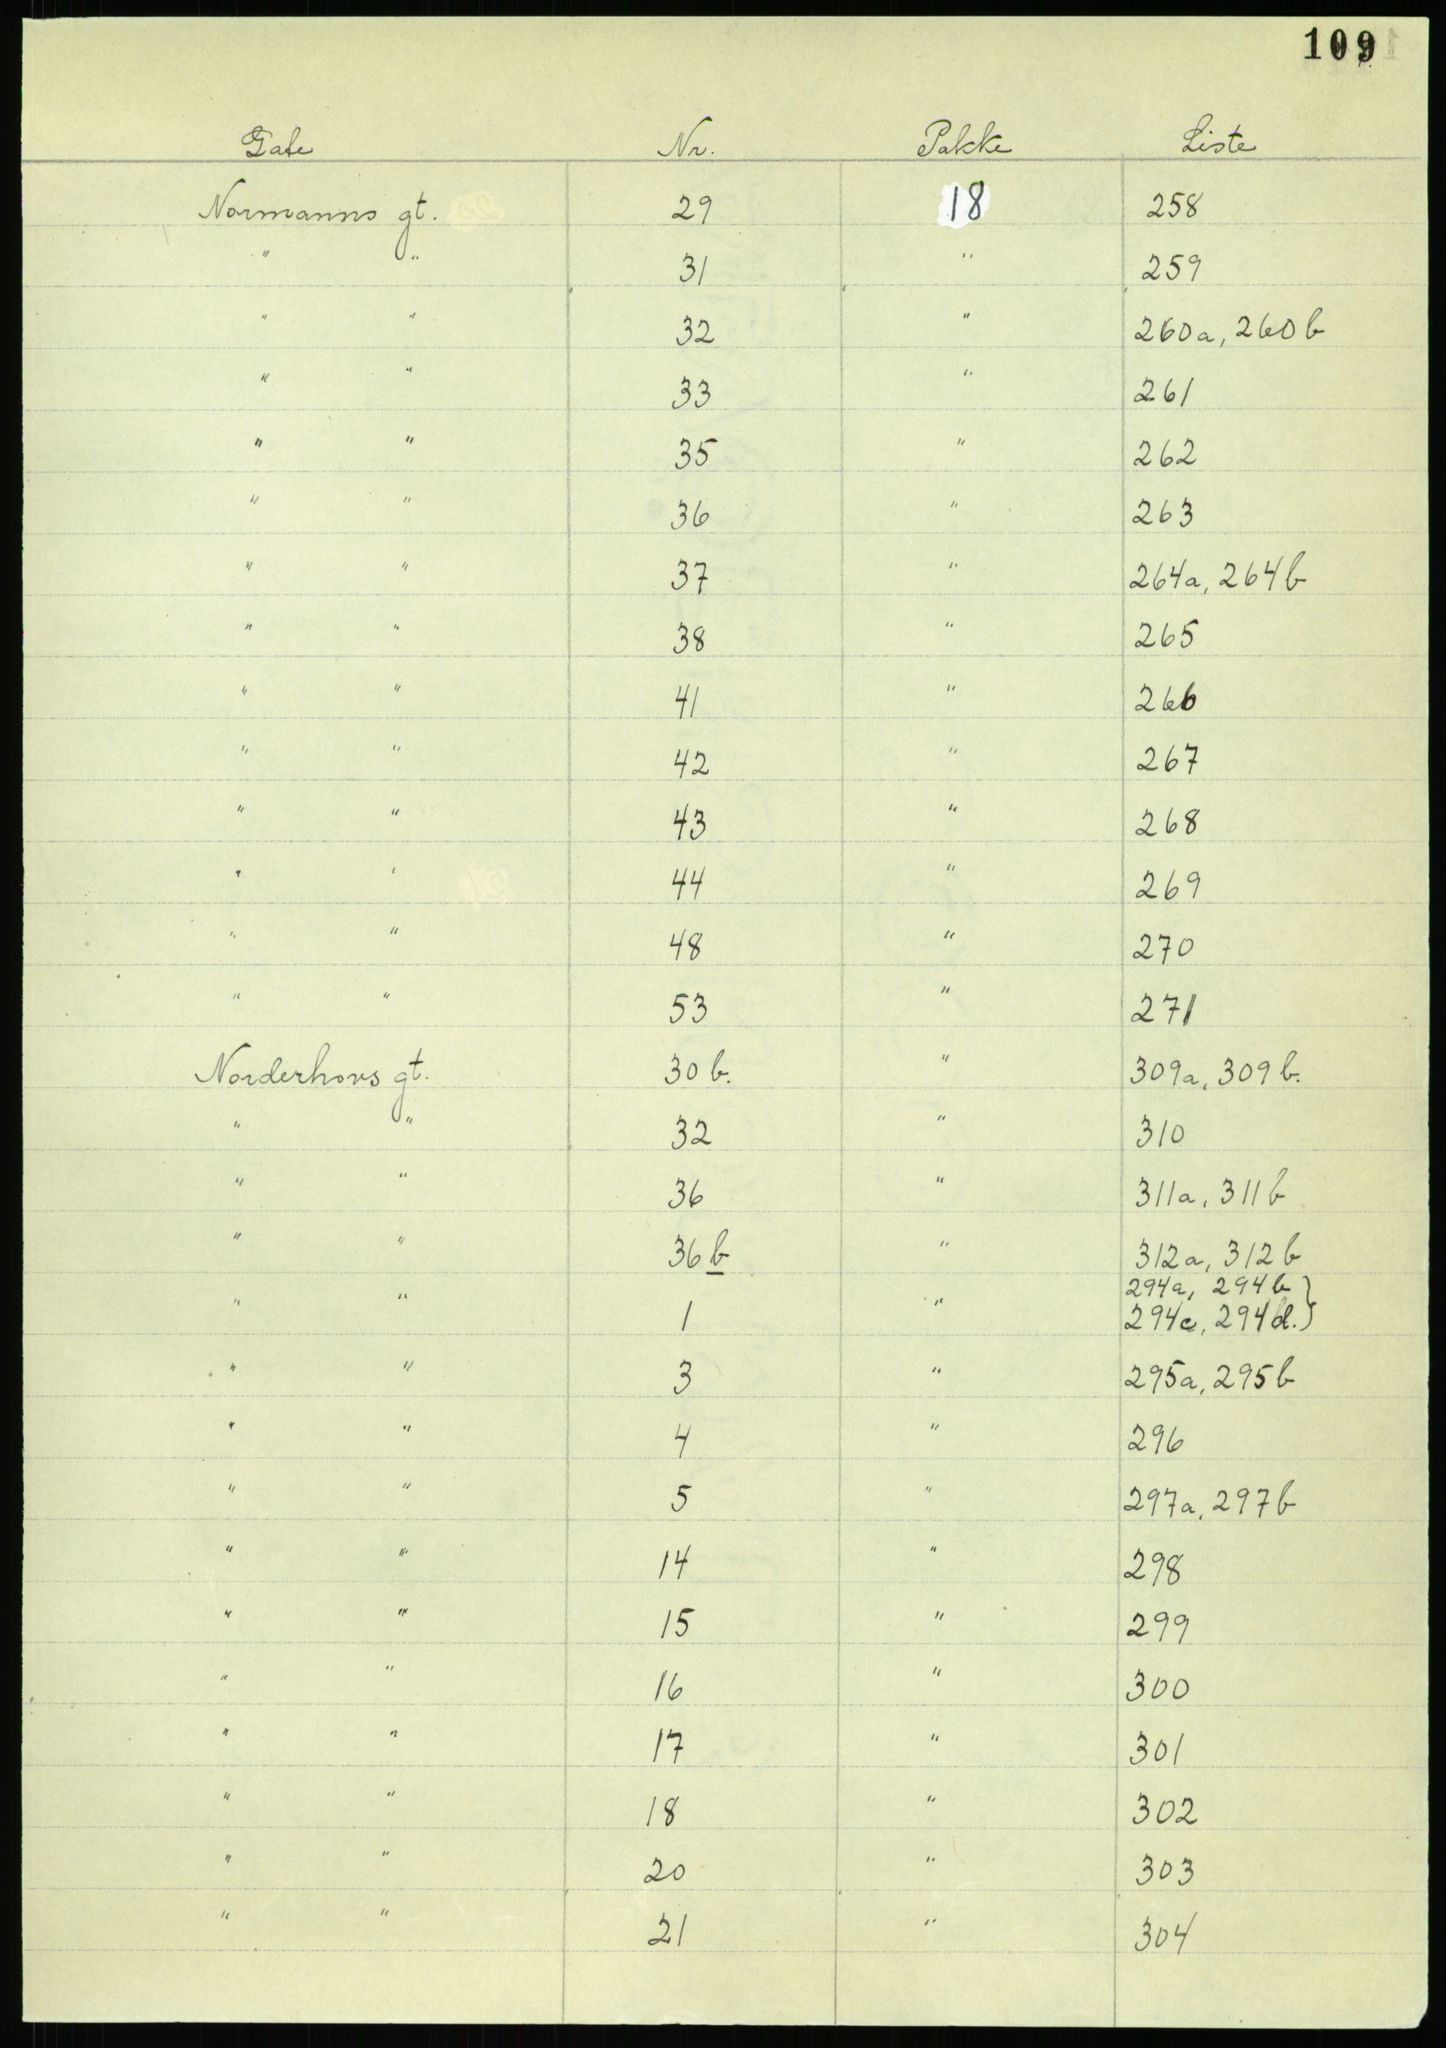 109
Gate Nr. Pakke Liste
Normanns gt. 29 18 258
" " 31 " 259
" " 32 " 260a, 260b
" " 33 " 261
" " 35 " 262
" " 36 " 263
" " 37 " 264a, 264b
" " 38 " 265
" " 41 " 266
" " 42 " 267
" " 43 " 268
" " 44 " 269
" " 48 " 270
" " 53 " 271
Norderhovs gt. 30 b. " 309a, 309b.
" " 32 " 310
" " 36 " 311a, 311b
" " 36 b " 312a, 312b
" " 1 " 294a, 294b }
294c, 294d. }
" " 3 " 295a, 295b
" " 4 " 296
" " 5 " 297a, 297b
" " 14 " 298
" " 15 " 299
" " 16 " 300
" " 17 " 301
" " 18 " 302
" " 20 " 303
" " 21 " 304